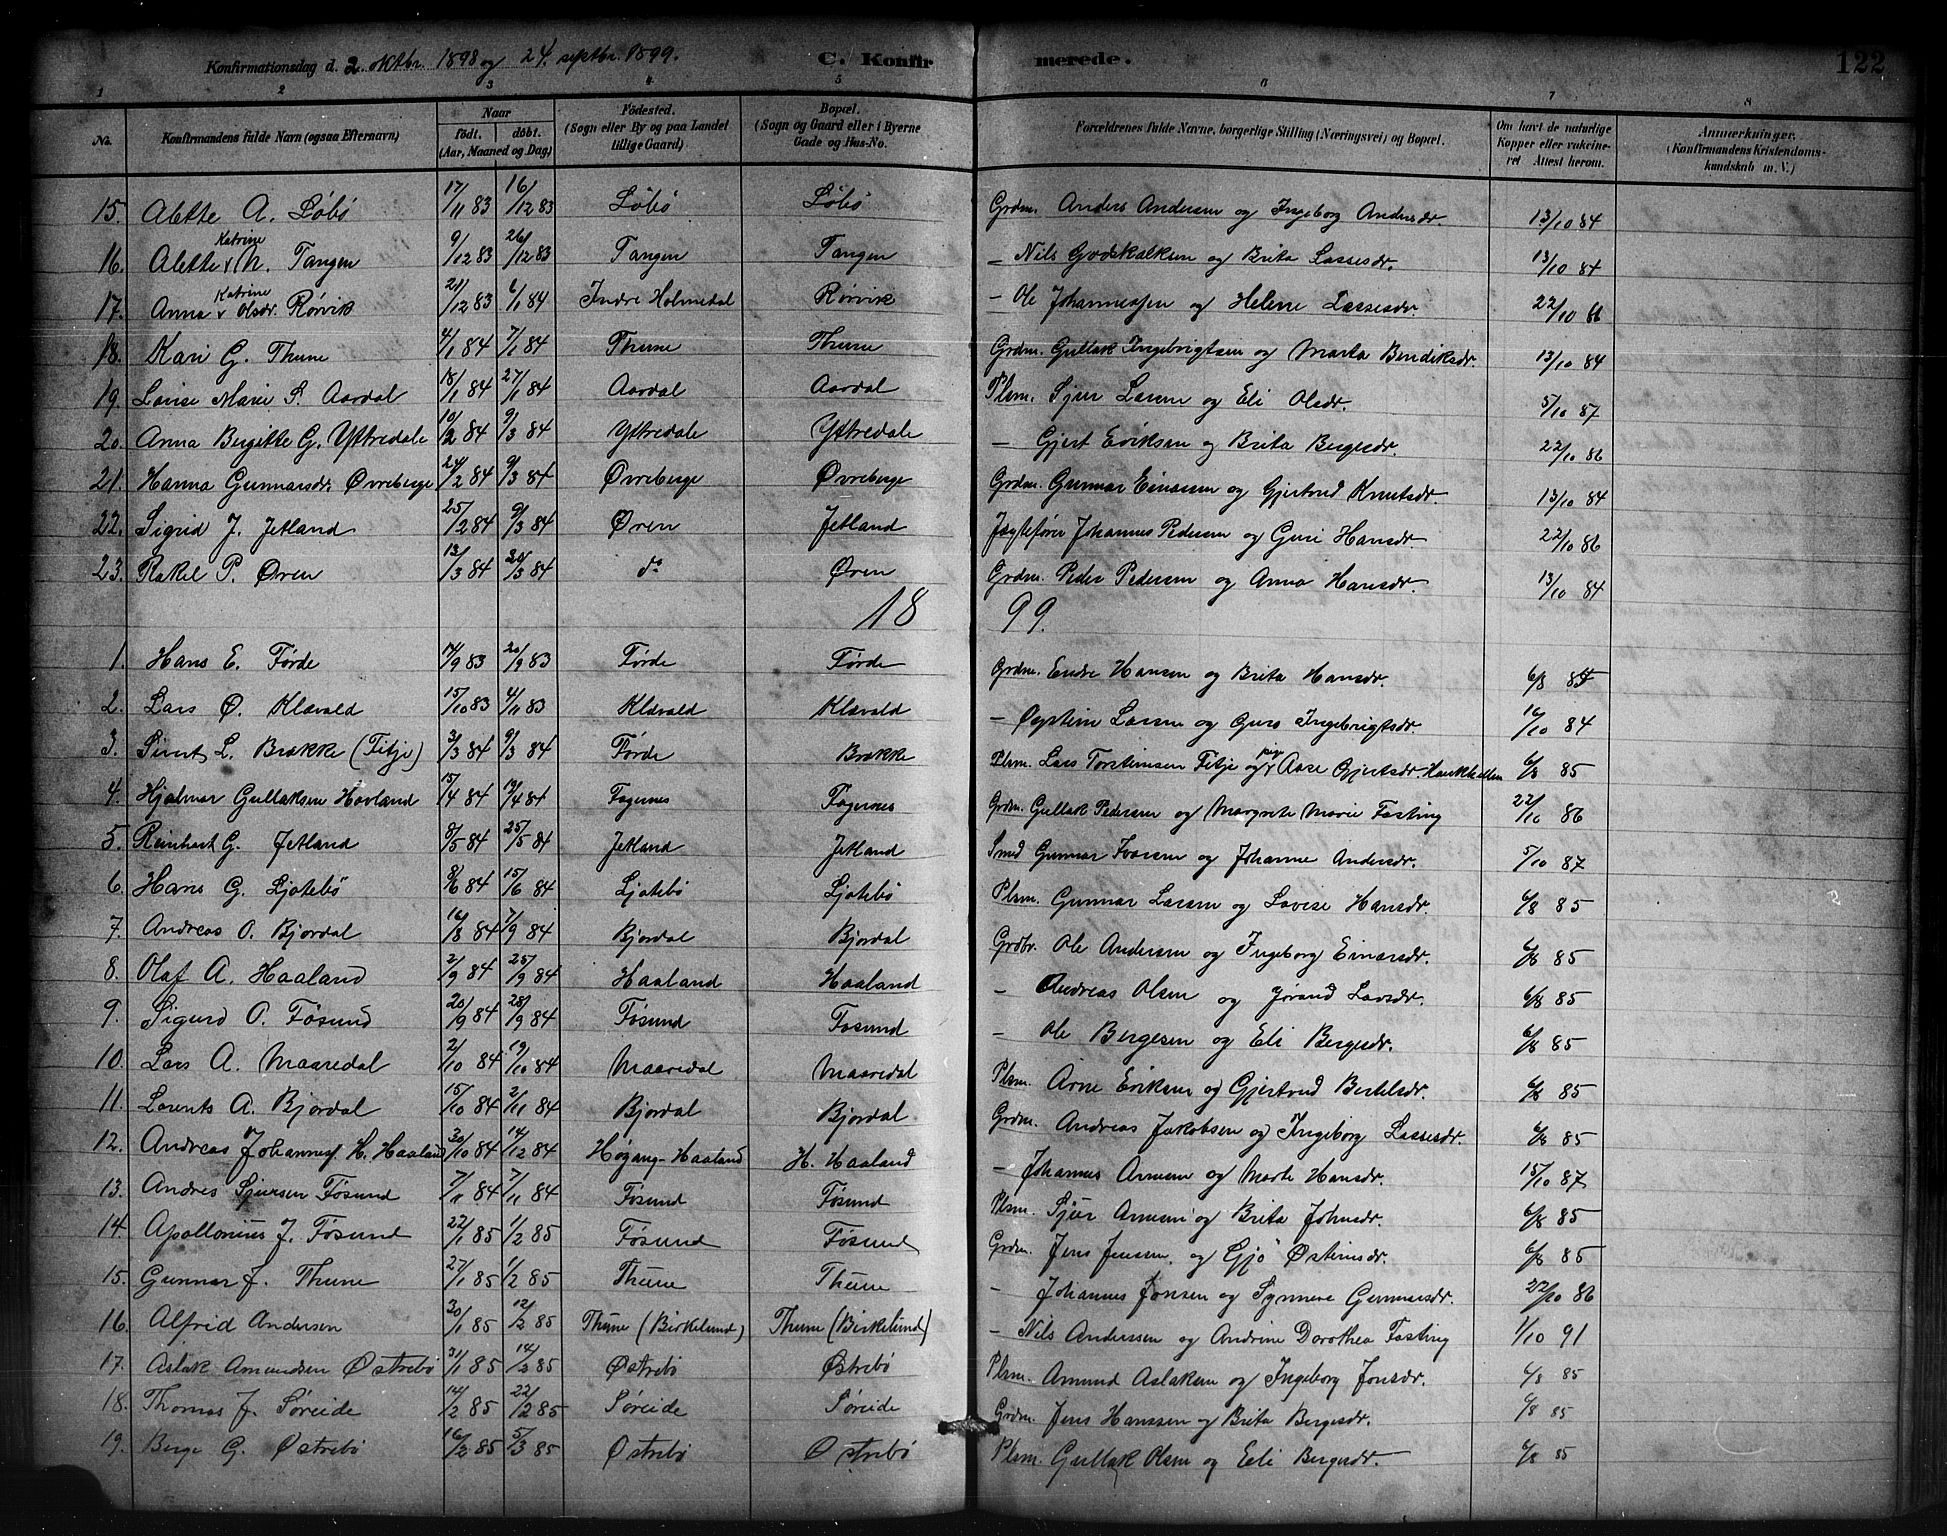 Konfirmationsdag d. 2. oktbr. 1898 og 24. septbr. 1899. C. Konfirmerede. 122
1 2 3 4 5 6 7 8
No. Konfirmandens fulde Navn (ogsaa Efternavn) Naar født. døbt. (Aar, Maaned og Dag) Fødested. (Sogn eller By og paa Landet tillige Gaard) Bopæl. (Sogn og Gaard eller i Byerne Gade og Hus-No. Forældrenes fulde Navne, borgerlige Stilling (Næringsvei) og Bopæl. Om havt de naturlige Kopper eller vakcineret Attest herom. Anmærkninger. (Konfirmandens Kristendomskundskab m. V.)
15. Alette A. Løbø 17/11 83 16/12 83 Løbø Løbø Grdm. Anders Andersen og Ingeborg Andersdr. 13/10 84
16. Alette Katrine N. Tangen 9/12 83 26/12 83 Tangen Tangen — Nils Godskalksen og Brita Lassesdr. 13/10 84
17. Anna Katrine Olsdr. Rørvik 21/12 83 6/1 84 Indre Holmedal Rørvik — Ole Johannessen og Helene Lassesdr. 22/10 86
18. Kari G. Thune 4/1 84 7/1 84 Thune Thune Grdm. Gullak Ingebrigtsen og Marta Bendiksdr. 13/10 84
19. Lovise Marie S. Aardal 18/1 84 27/1 84 Aardal Aardal Plsm. Sjur Larsen og Eli Olsdr. 5/10 87
20. Anna Bergitte G. Yttredale 10/2 84 9/3 84 Yttredale Yttredale — Gjert Eriksen og Brita Bergesdr. 22/10 86
21. Hanna Gunnarsdr. Øvreberge 24/2 84 9/3 84 Øvreberge Øvreberge Grdm. Gunnar Einarsen og Gjertrud Knutsdr 13/10 84
22. Sigrid J. Jetland 25/2 84 9/3 84 Øren Jetland Jægtefører Johannes Pedersen og Guri Hansdr. 22/10 86
23. Rakel P. Øren 13/3 84 30/3 84 do Øren Grdm. Peder Pedersen og Anna Hansdr. 13/10 84
1899.
1. Hans E. Førde 14/9 83 20/9 83 Førde Førde Grdm. Endre Hansen og Brita Hansdr. 6/8 85
2. Lars Ø. Klævald 15/10 83 4/11 83 Klævald Klævald — Øystein Larsen og Guro Ingebrigtsdr. 16/10 84
3. Sivert L. Brakke (Fitje) 3/3 84 9/3 84 Førde Brakke Plsm. Lars Torsteinsen Fitje og pige Aase Gjertsdr. 6/8 85
4. Hjalmar Gullaksen Havland 15/4 84 19/4 84 Fagernes Fagernes Grdm. Gullak Pedersen og Margrete Marie Fasting 22/10 86
5. Reinhart G. Jetland 8/5 84 25/5 84 Jetland Jetland Smed Gunnar Ivarsen og Johanne Andersdr. 5/10 87
6. Hans G. Ljotebø 8/6 84 15/6 84 Ljotebø Ljotebø Plsm. Gunnar Larsen og Lovise Hansdr. 6/8 85
7. Andreas O. Bjordal 16/8 84 7/9 84 Bjordal Bjordal Grdbr. Ole Andersen og Ingeborg Einarsdr. 6/8 85
8. Olaf A. Haaland 2/9 84 25/9 84 Haaland Haaland — Andreas Olsen og Jørand Larsdr. 6/8 85
9. Sigurd O. Føsund 20/9 84 28/9 84 Føsund Føsund — Ole Bergesen og Eli Bergesdr. 6/8 85
10. Lars A. Maaredal 2/10 84 19/10 84 Maaredal Maaredal Plsm. Arne Eriksen og Gjertrud Bertelsdr. 6/8 85
11. Lorents A. Bjordal 15/10 84 2/11 84 Bjordal Bjordal Grdm. Andreas Jakobsen og Ingeborg Lassesdr. 6/8 85
12. Andreas Johannes. H. Haaland 30/10 84 14/12 84 Høgang-Haaland H. Haaland — Johannes Arnesen og Marte Hansdr. 15/10 87
13. Andres Sjursen Føsund 7/11 84 7/11 84 Føsund Føsund Plsm. Sjur Arnesen og Brita Johnsdr. 6/8 85
14. Apollonius J. Føsund 22/1 85 1/2 85 Føsund Føsund Grdm. Jens Jensen og Gjø Østensdr. 6/8 85
15. Gunnar J. Thune 27/1 85 1/2 85 Thune Thune — Johannes Jonsen og Synneve Gunnarsdr. 22/10 86
16. Alfrid Andersen 30/1 85 12/2 85 Thune (Birkelund) Thune (Birkelund) — Nils Anderssen og Andrine Dorothea Fasting 1/10 91
17. Aslak Amundsen Østrebø 31/1 85 14/2 85 Østrebø Østrebø Plsm. Amund Aslaksen og Ingeborg Jonsdr. 6/8 85
18. Thomas J. Søreide 14/2 85 22/2 85 Søreide Søreide Grdm. Jens Hanssen og Brita Bergesdr. 6/8 85
19. Berge G. Østrebø 16/2 85 5/3 85 Østrebø Østrebø Plsm. Gullak Olsen og Eli Bergesdr. 6/8 85